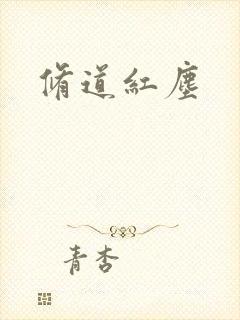 脩道紅塵
青杏